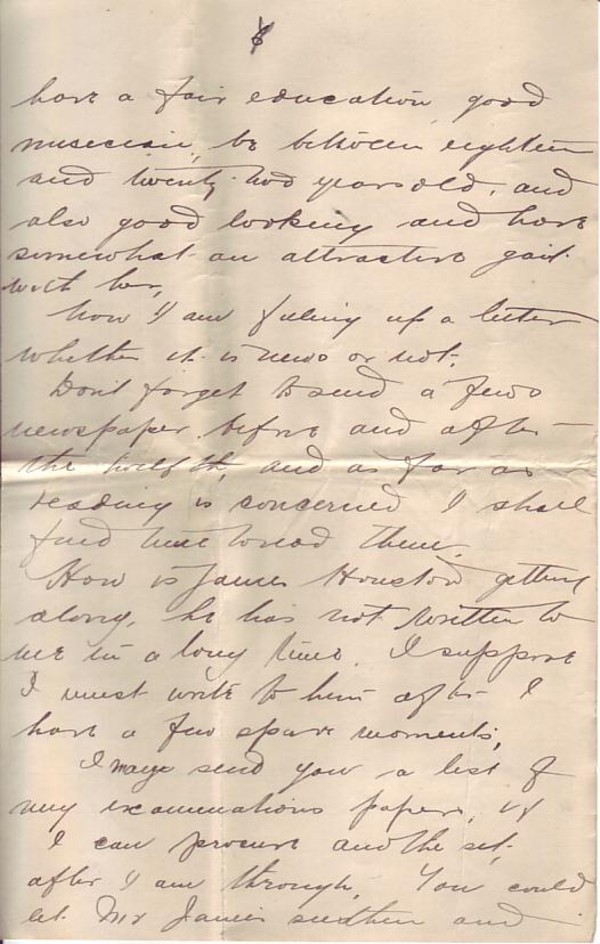 8
have a fair education, good
musician, be between eighteen
and twenty two years old, and
also good looking and have
somewhat an attractive gait
with her,
Now I am filling up a letter
whether it is news or not.
Don't forget to send a few
newspaper before and after
the twelfth, and as far as
reading is concerned I shall
find time to read them.
How is James Houston getting
along, he has not written to
me in a long time. I suppose
I must write to him after I
have a few spare moments,
I maye send you a list of
my examinations papers, if
I can procure another set,
after I am through, You could
let Mr James see them and